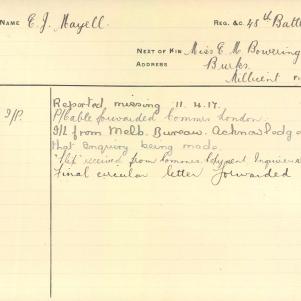 NAME E. J. Hayell. REG. &C. 48th Batt
NEXT OF KIN Miss E. M. Bowering
ADDRESS Burks
Millicent
Reported missing 11.4.17.
I/P. P/Cable forwarded Commrs London.
I/L from Melb. Bureau. Acknowledg
that enquiry being made.
received from Commrs. Inquiries
Final circular letter forwarded